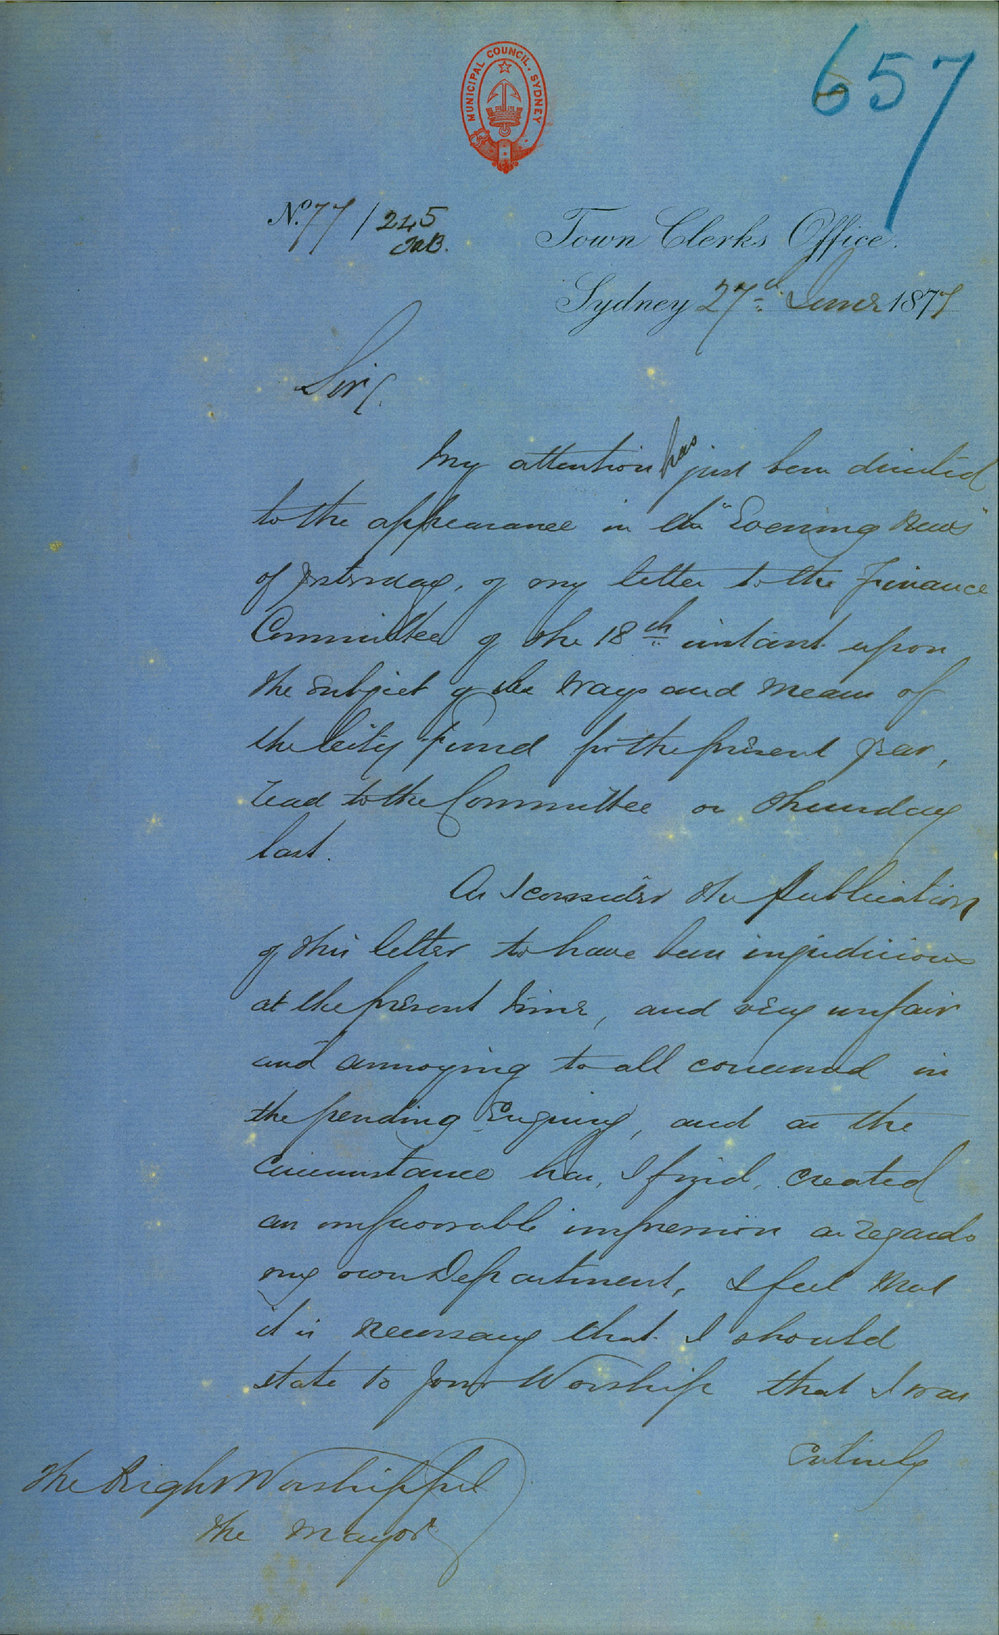 657
MUNICIPAL COUNCIL, SYDNEY
No. 77/245
Town Clerks Office.
Sydney 27th June 1877
Sir,
My attention has just been directed
to the appearance in the "Evening News"
of yesterday, of my letter to the Finance
Committee of the 18th instant upon
the subject of the Ways and Means of
the City Fund for the present year,
read to the Committee on Thursday
last.
As I consider the publication
of this letter to have been injudicious
at the present time, and very unfair
and annoying to all concerned in
the pending Enquiry, and as the
Circumstance has, I find, created
an unfavorable impression as regards
my own Department, I feel that
it is necessary that I should
state to Your Worship that I was
entirely
The Right Worshipful
The Mayor